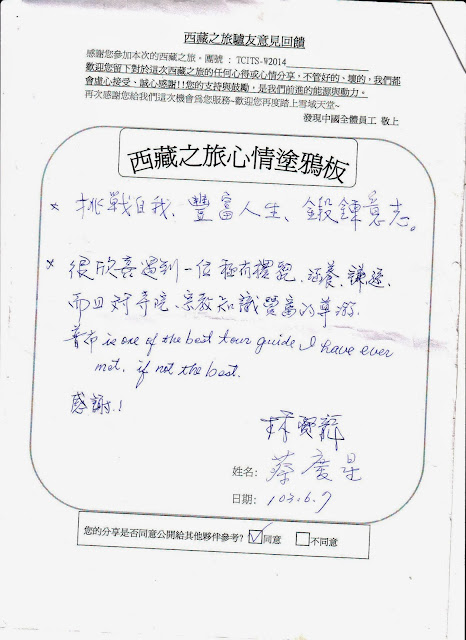 西藏之旅驢友意見回饋
感謝您參加本次的西藏之旅。團號：TCITS-W2014
歡迎您留下對於這次西藏之旅的任何心得或心情分享，不管好的、壞的，我們都
會虛心接受、誠心感謝!!您的支持與鼓勵，是我們前進的能源與動力。
再次感謝您給我們這次機會為您服務~歡迎您再度踏上雪域天堂~
發現中國全體員工 敬上
西藏之旅心情塗鴉板
* 挑戰自我、豐富人生、鍛鍊意志。
* 很欣喜遇到一位極有禮貌、涵養、謙遜、
而且對寺院、宗教知識豐富的導游.
普布 is one of the best tour guide I have ever
met, if not the best.
感謝!
林
姓名: 蔡慶星
日期: 103.6.7
您的分享是否同意公開給其他夥伴參考? ☑同意 □不同意